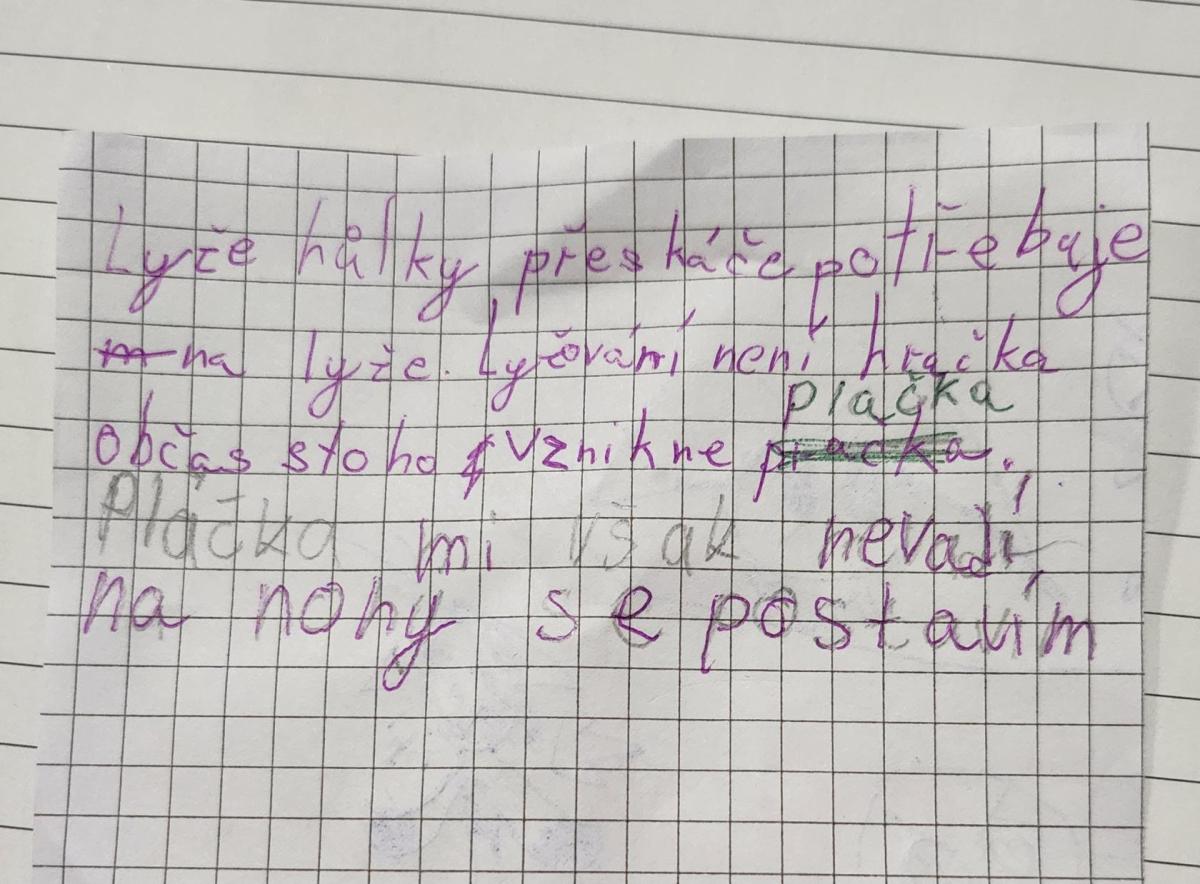 Lyže hůlky přeskáče potřebuje
na lyže. Lyžování není hračka
plačka
občas stoho vznikne pracka.
Plačka mi však nevadí,
na nohy se postavím